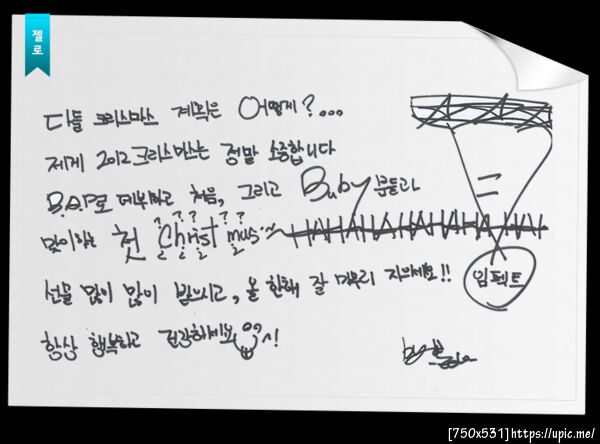 젤로
다들 크리스마스 계획은 어떻게?...
제게 2012 크리스마스는 정말 소중합니다
B.A.P로 데뷔하고 처음, 그리고 Baby 분들과
맞이하는 첫 Christmas~
선물 많이 많이 받으시고, 올 한해 잘 마무리 지으세요!!
항상 행복하고 건강하세요~!
임펙트
by
[750x531]https://upic.me/